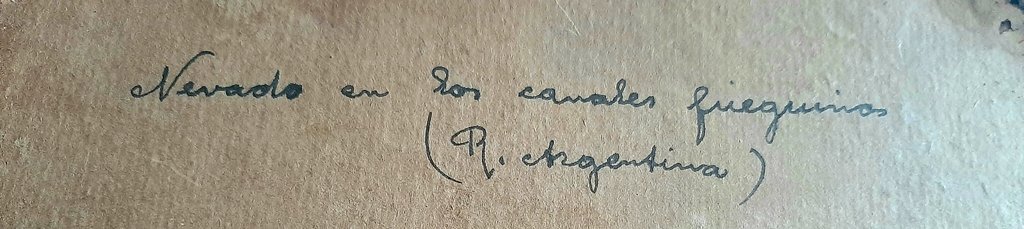 Nevado en los canales fueguinos
(R. Argentina)